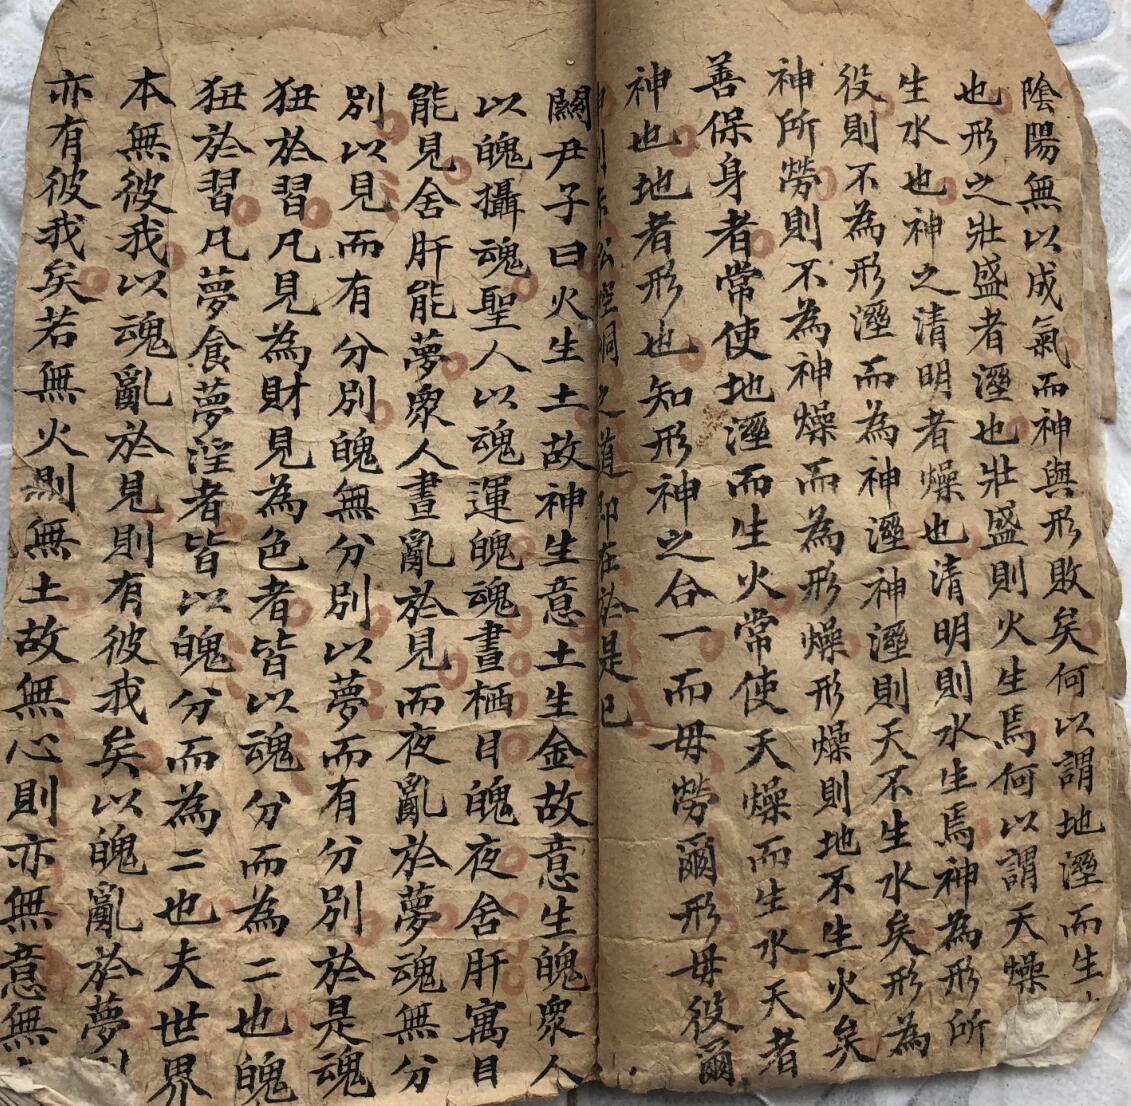 陰陽無以成氣而神與形敗矣何以謂地溼而生
也形之壯盛者溼也壯盛則火生焉何以謂天燥
生水也神之清明者燥也清明則水生焉神為形所
役則不為形溼而為神溼神溼則天不生水矣形為
神所勞則不為神燥而為形燥形燥則地不生火矣
善保身者常使地溼而生火常使天燥而生水天者
神也地者形也知形神之合一而毋勞爾形毋役爾
之道即在於是已
關尹子曰火生土故神生意土生金故意生魄眾人
以魄攝魂聖人以魂運魄魂晝栖目魄夜舍肝寓目
能見舍肝能夢眾人晝亂於見而夜亂於夢魂無分
別以見而有分別魄無分別以夢而有分別於是魂
狃於習凡見為財見為色者皆以魂分而為二也魄
狃於習凡夢食夢淫者皆以魄分而為二也夫世界
本無彼我以魂亂於見則有彼我矣以魄亂於夢
亦有彼我矣若無火則無土故無心則亦無意無